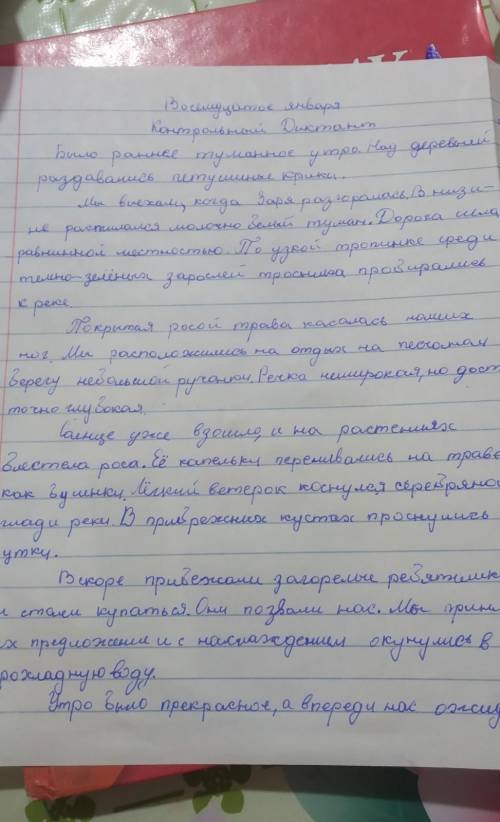 Восемнцатое января
Контрольный Диктант
Было раннее туманное утро. Над деревней
раздавались петушиные крики.
Мы выехали, когда Заря разгоралась. В низи-
не распылался молочно белый туман. Дорога шла
равнинной местностью. По узкой тропинке среди
темно-зелёных зарослей тросника пробирались
к реке.
Покрытая росой трава касалась наших
ног. Мы расположились на отдых на песчаном
берегу небольшой Речка неширокая, но дост
точно глубокая.
уже взошло, и на растениях
блестела роса. Её капельки переливались на траве
как Лёгкий ветерок коснулся серебряной
глади реки. В прибрежних кустах проснулись
утки.
Вскоре прибежали загорелые ребятишк
и стали купаться. Они позвали нас. Мы прин
их предложении и с наслаждением окунулись в
рохладную воду.
Утро было прекрасное, а впереди нас ожид